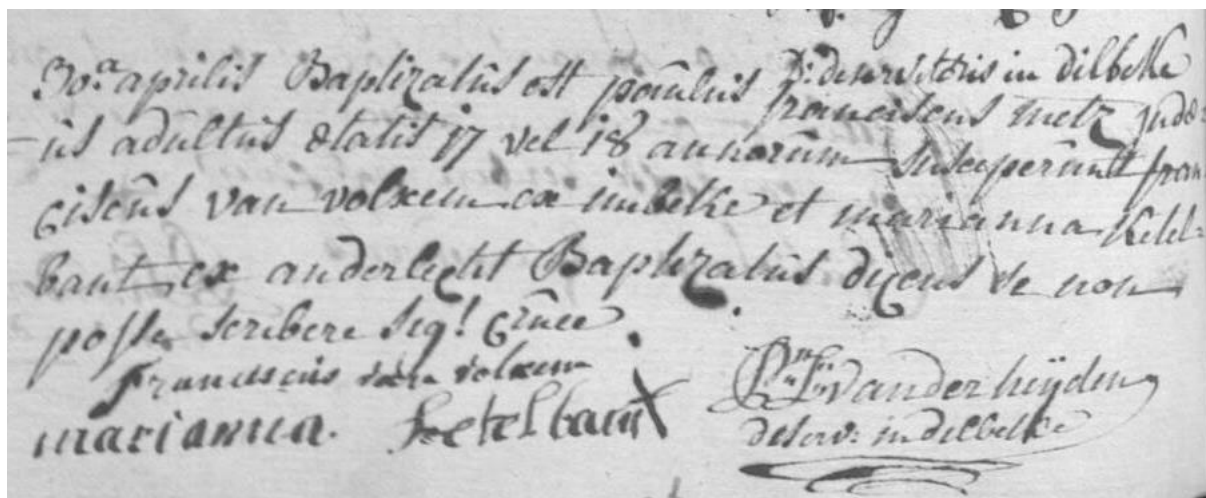 D: deservitoris in dilbeke
30.a aprilis Baptizatus est paulus franciscus metz judæ:
-us adultus ætatis 17 vel 18 annorum susceperunt fran-
ciscus van volxem ex imbeke et marianna Ketel-
bant ex anderleght Baptizatus dicens se non
posse scribere sig! cruce
franciscus van volxem
marianna. Ketelbant X
vander heÿden
deserv: in dilbeke